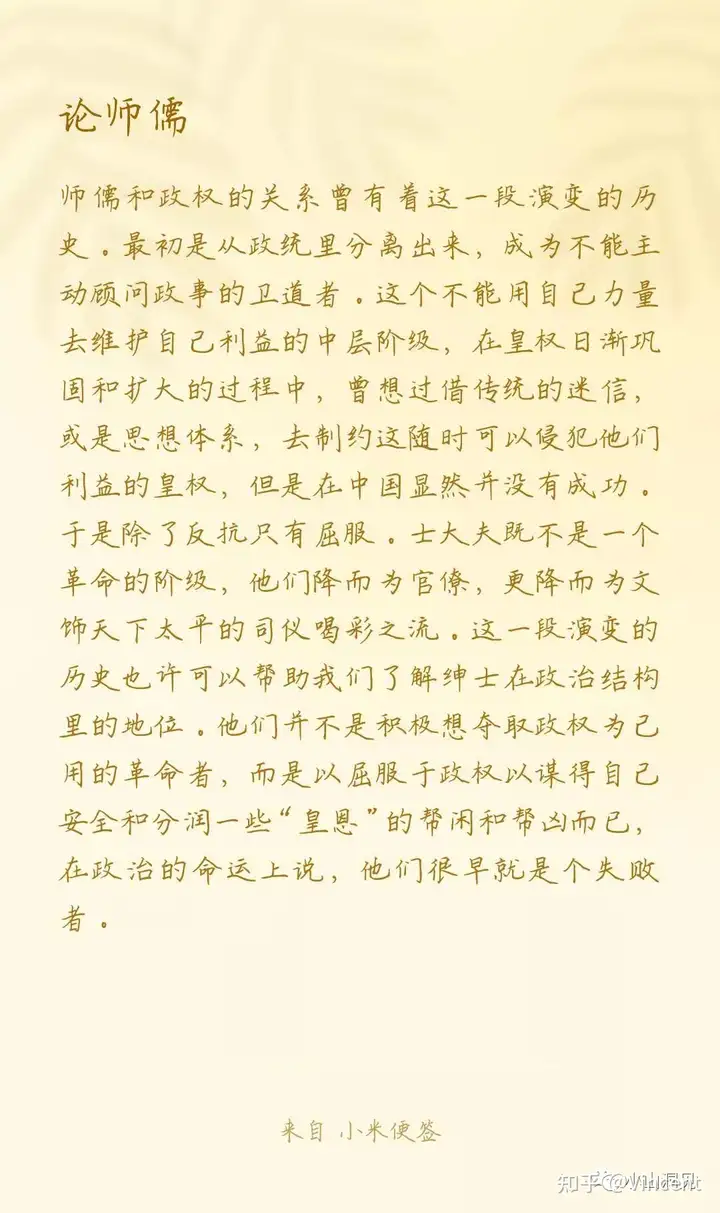 论师儒
师儒和政权的关系曾有着这一段演变的历
史。最初是从政统里分离出来，成为不能主
动顾问政事的卫道者。这个不能用自己力量
去维护自己利益的中层阶级，在皇权日渐巩
固和扩大的过程中，曾想过借传统的迷信，
或是思想体系，去制约这随时可以侵犯他们
利益的皇权，但是在中国显然并没有成功。
于是除了反抗只有屈服。士大夫既不是一个
革命的阶级，他们降而为官僚，更降而为文
饰天下太平的司仪喝彩之流。这一段演变的
历史也许可以帮助我们了解绅士在政治结构
里的地位。他们并不是积极想夺取政权为己
用的革命者，而是以屈服于政权以谋得自己
安全和分润一些“皇恩”的帮闲和帮凶而已，
在政治的命运上说，他们很早就是个失败
者。
来自 小米便签
知乎 @Vincent